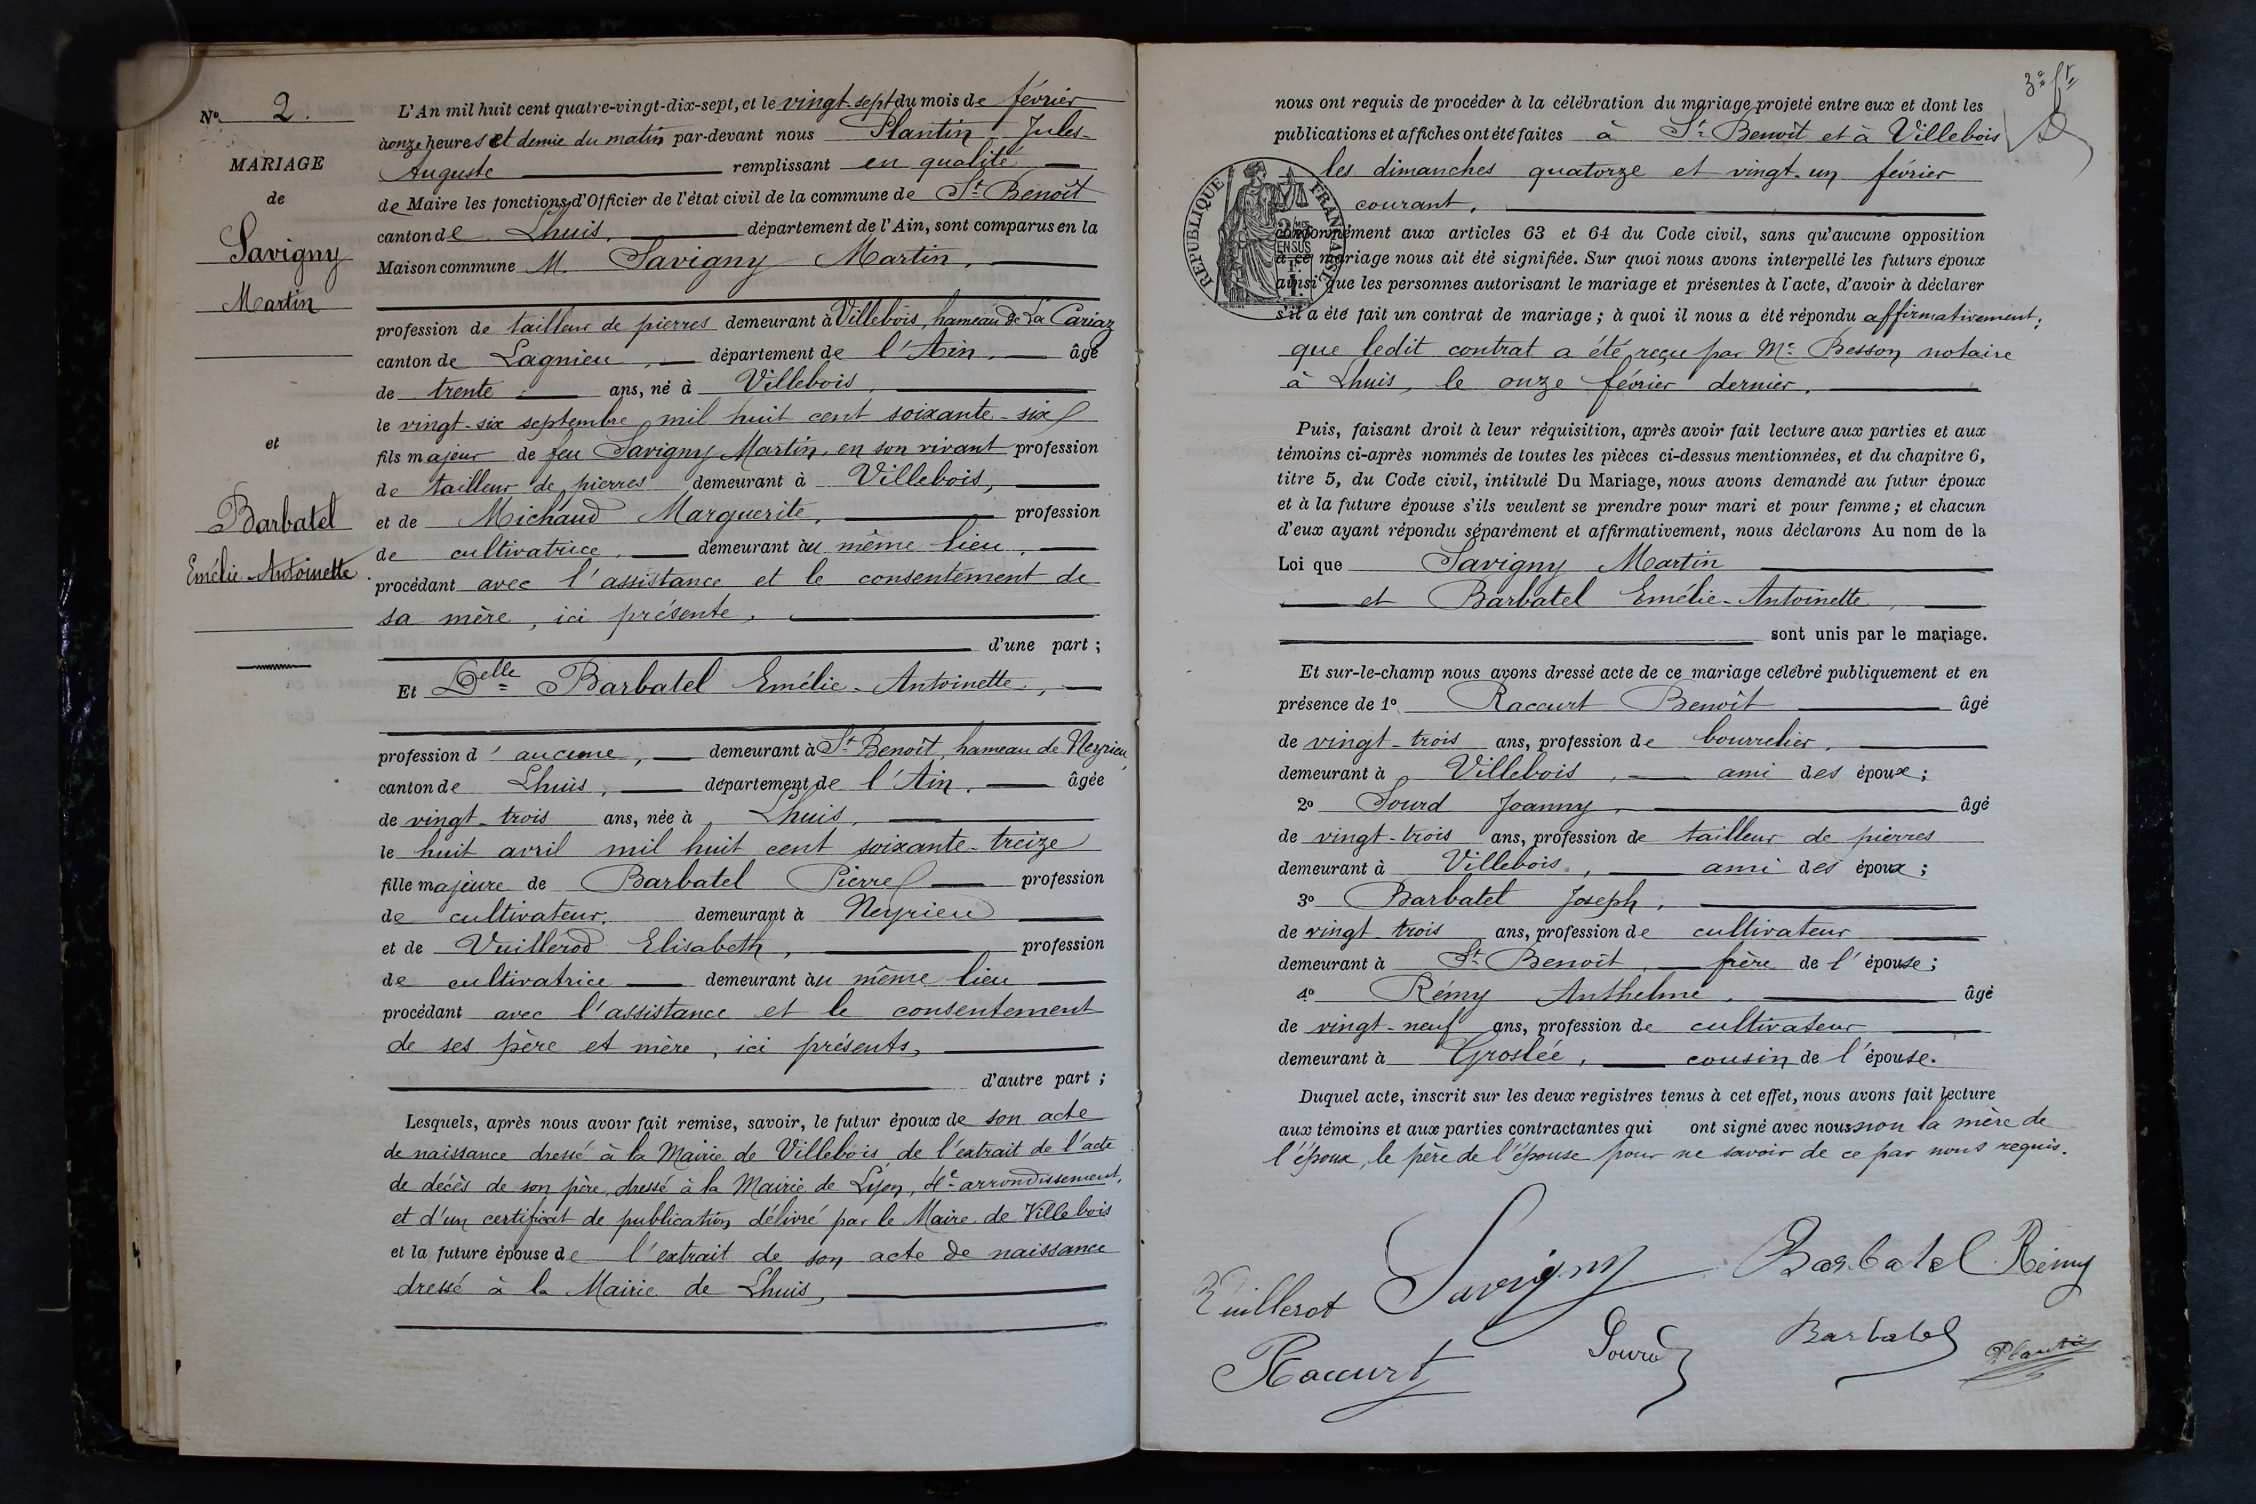 No 2.
MARIAGE
de
Savigny
Martin
et
Barbatel
Emélie-Antoinette
L'An mil huit cent quatre-vingt-dix-sept, et le vingt-sept du mois de février
à onze heures et demie du matin par-devant nous Plantin Jules-
Auguste remplissant en qualité
de Maire les fonctions d'Officier de l'état civil de la commune de St Benoît
canton de Lhuis, département de l'Ain, sont comparus en la
Maison commune M. Savigny Martin,
profession de tailleur de pierres demeurant à Villebois, hameau de La Cariaz
canton de Lagnieu, département de l'Ain, âgé
de trente ans, né à Villebois,
le vingt-six septembre mil huit cent soixante-six
fils majeur de feu Savigny Martin, en son vivant profession
de tailleur de pierres demeurant à Villebois,
et de Michaud Marguerite, profession
de cultivatrice, demeurant au même lieu,
procédant avec l'assistance et le consentement de
sa mère, ici présente,
d'une part ;
Et Delle Barbatel Emélie-Antoinette,
profession d'aucune, demeurant à St Benoît, hameau de Neyrieu,
canton de Lhuis, département de l'Ain, âgée
de vingt-trois ans, née à Lhuis,
le huit avril mil huit cent soixante-treize
fille majeure de Barbatel Pierre profession
de cultivateur, demeurant à Neyrieu
et de Vuillerod Elisabeth, profession
de cultivatrice demeurant au même lieu
procédant avec l'assistance et le consentement
de ses père et mère, ici présents,
d'autre part ;
Lesquels, après nous avoir fait remise, savoir, le futur époux de son acte
de naissance dressé à la Mairie de Villebois, de l'extrait de l'acte
de décès de son père, dressé à la Mairie de Lyon, 4e arrondissement,
et d'un certificat de publication délivré par le Maire de Villebois
et la future épouse de l'extrait de son acte de naissance
dressé à la Mairie de Lhuis,
nous ont requis de procéder à la célébration du mariage projeté entre eux et dont les
publications et affiches ont été faites à St Benoît et à Villebois
les dimanches quatorze et vingt-un février
courant,
RÉPUBLIQUE FRANÇAISE
conformément aux articles 63 et 64 du Code civil, sans qu'aucune opposition
à ce mariage nous ait été signifiée. Sur quoi nous avons interpellé les futurs époux
ainsi que les personnes autorisant le mariage et présentes à l'acte, d'avoir à déclarer
s'il a été fait un contrat de mariage ; à quoi il nous a été répondu affirmativement ;
que ledit contrat a été reçu par Me Besson notaire
à Lhuis, le onze février dernier,
Puis, faisant droit à leur réquisition, après avoir fait lecture aux parties et aux
témoins ci-après nommés de toutes les pièces ci-dessus mentionnées, et du chapitre 6,
titre 5, du Code civil, intitulé Du Mariage, nous avons demandé au futur époux
et à la future épouse s'ils veulent se prendre pour mari et pour femme ; et chacun
d'eux ayant répondu séparément et affirmativement, nous déclarons Au nom de la
Loi que Savigny Martin
et Barbatel Emélie-Antoinette,
sont unis par le mariage.
Et sur-le-champ nous avons dressé acte de ce mariage célébré publiquement et en
présence de 1o Raccurt Benoît âgé
de vingt-trois ans, profession de bourrelier,
demeurant à Villebois, ami des époux ;
2o Sourd Joanny, âgé
de vingt-trois ans, profession de tailleur de pierres
demeurant à Villebois, ami des époux ;
3o Barbatel Joseph,
de vingt trois ans, profession de cultivateur
demeurant à St Benoît, frère de l'épouse ;
4o Rémy Anthelme, âgé
de vingt-neuf ans, profession de cultivateur
demeurant à Groslée, cousin de l'épouse.
Duquel acte, inscrit sur les deux registres tenus à cet effet, nous avons fait lecture
aux témoins et aux parties contractantes qui ont signé avec nous non la mère de
l'époux, le père de l'épouse pour ne savoir de ce par nous requis.
Savigny Barbatel Rémy
Vuillerot
Raccurt Sourd Barbatel Plantin